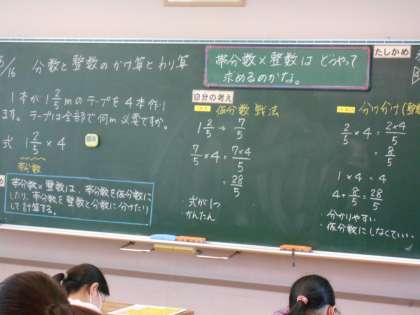 5/16 分数と整数のかけ算とわり算
帯分数×整数は どうやって
求めるのかな。
たしかめ
1本が 1 2/5 mのテープを4本作り
ます。テープは全部で何m必要ですか。
式 1 2/5 × 4
帯分数
帯分数×整数は、帯分数を仮分数に
したり、帯分数を整数と分数に分けたり
して計算する。
自分の考え
仮分数戦法
1 2/5 → 7/5
7/5 × 4 = 7×4/5
= 28/5
・式が1つ
・かんたん
分け分け(整
2/5 × 4 = 2×4/5
= 8/5
1 × 4 = 4
4 + 8/5 = 28/5
・分かりやすい
・仮分数にしなくていい